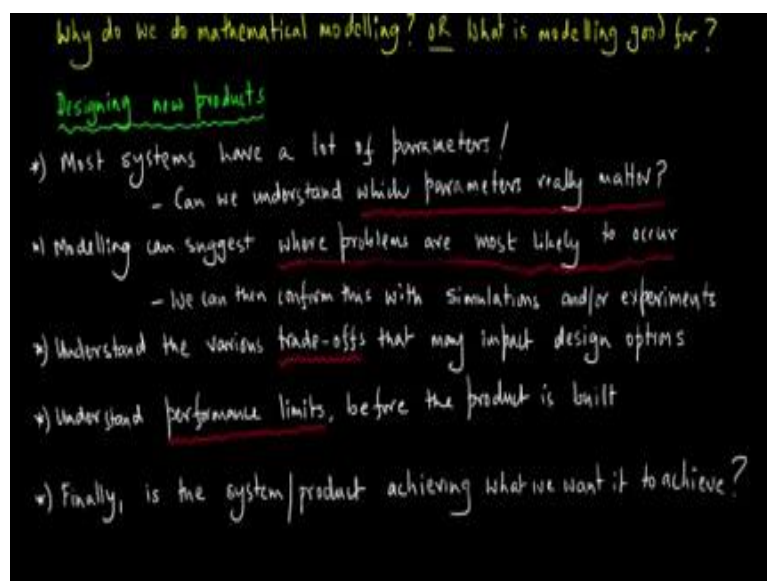 Why do we do mathematical modelling? OR What is modelling good for?
Designing new products
*) Most systems have a lot of parameters!
- Can we understand which parameters really matter?
*) Modelling can suggest where problems are most likely to occur
- We can then confirm this with simulations and/or experiments
*) Understand the various trade-offs that may impact design options
*) Understand performance limits, before the product is built
*) Finally, is the system/product achieving what we want it to achieve?